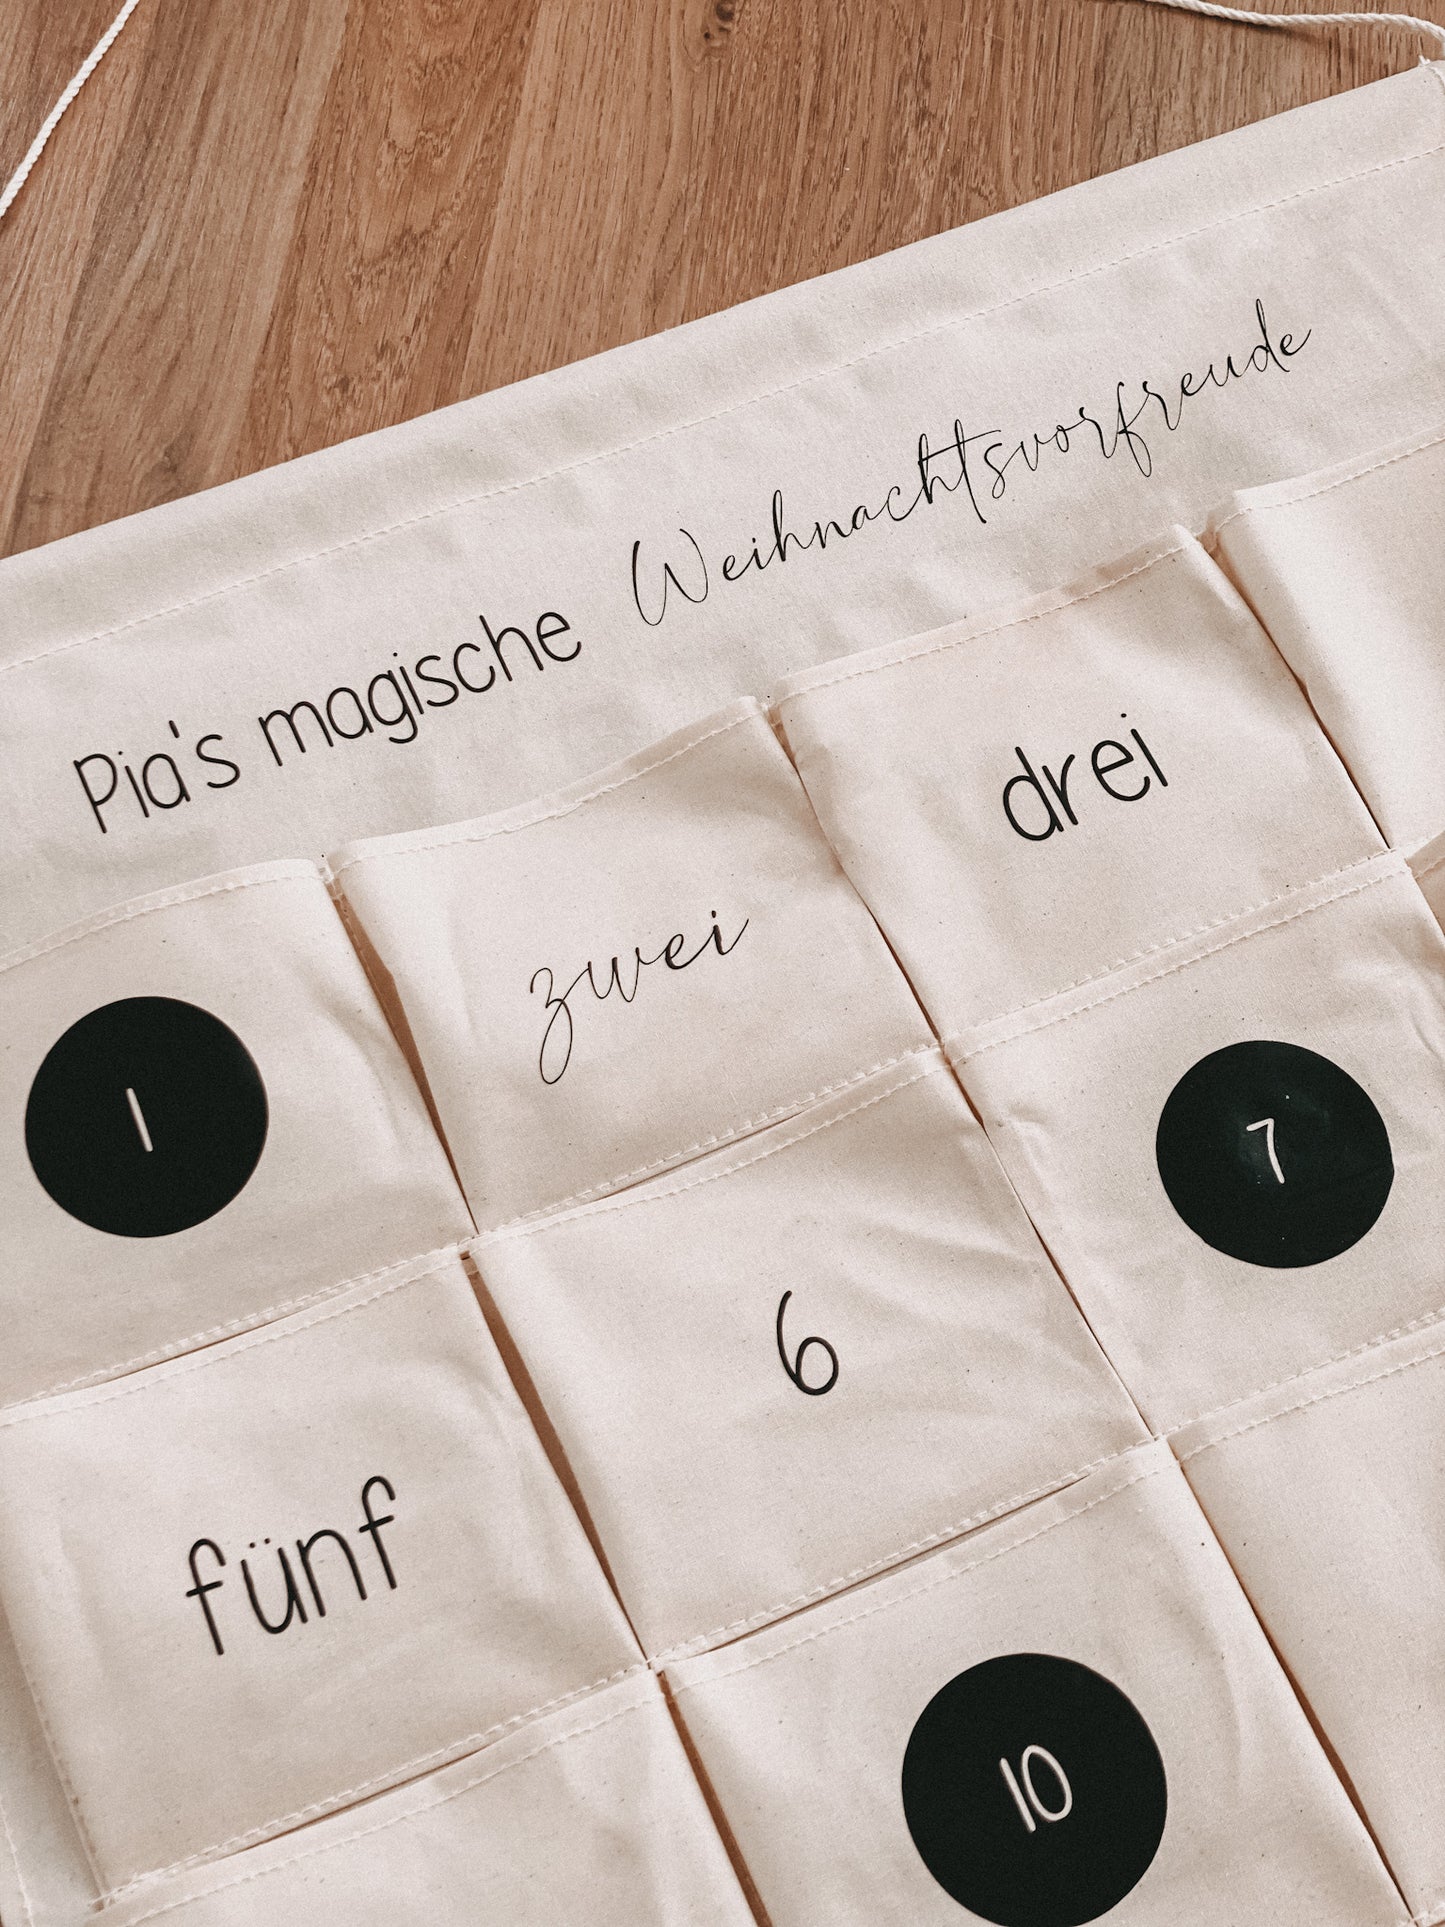 Pia's magische Weihnachtsvorfreude
1
zwei
drei
fünf
6
7
10